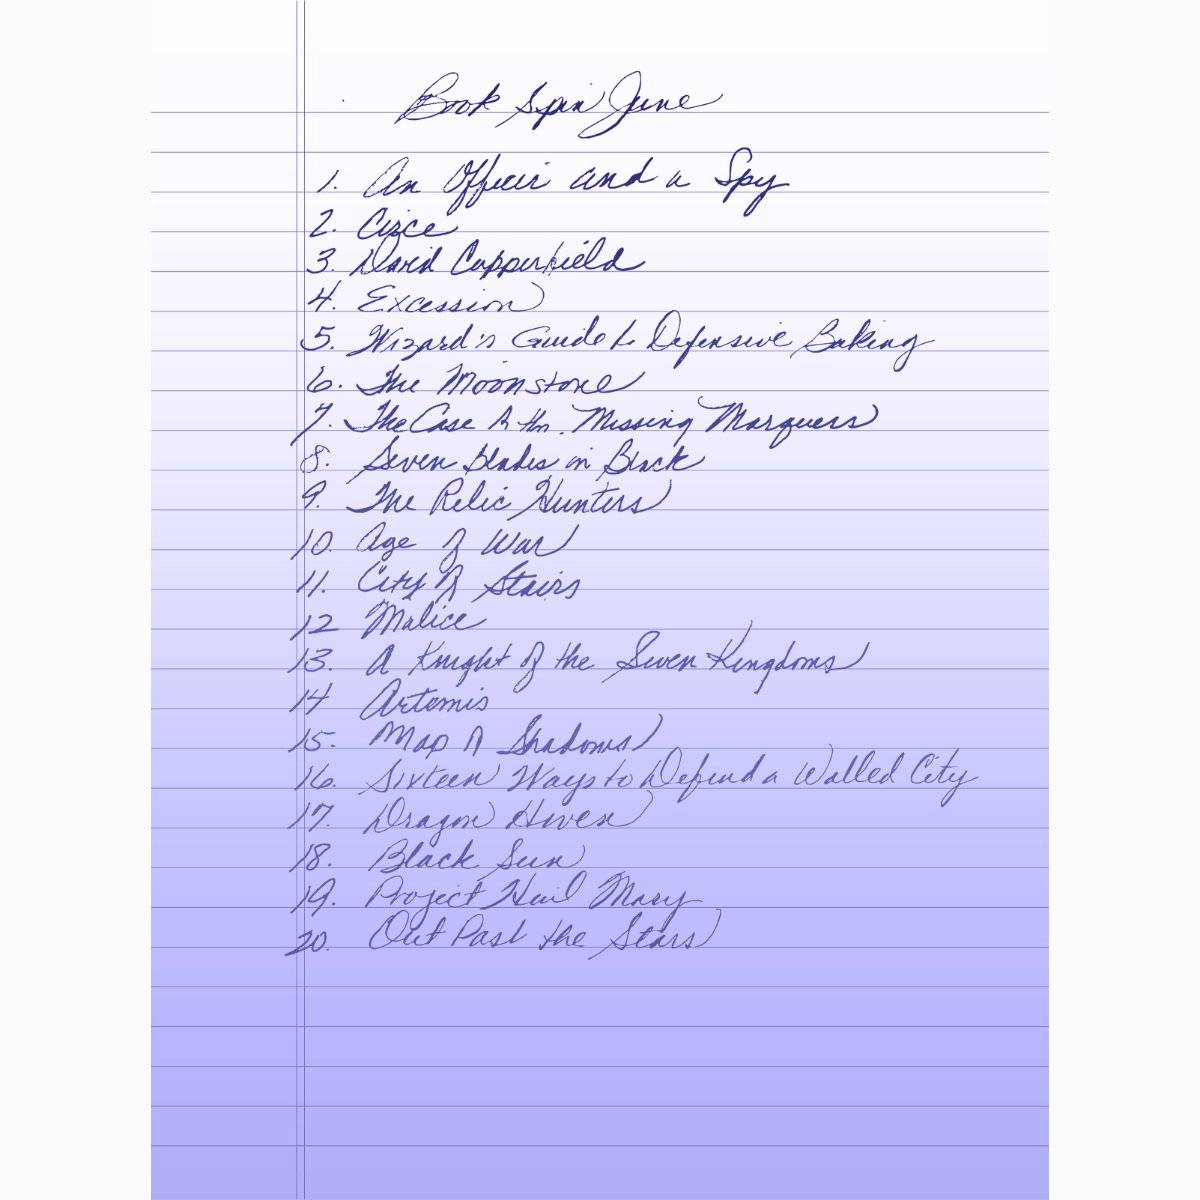 Book Spin June
1. An Officer and a Spy
2. Circe
3. David Copperfield
4. Excession
5. Wizard's Guide to Defensive Baking
6. The Moonstone
7. The Case of the Missing Marquess
8. Seven Blades in Black
9. The Relic Hunters
10. Age of War
11. City of Stairs
12 Malice
13. A Knight of the Seven Kingdoms
14 Artemis
15. Map of Shadows
16. Sixteen Ways to Defend a Walled City
17. Dragon Haven
18. Black Sun
19. Project Hail Mary
20. Out Past the Stars